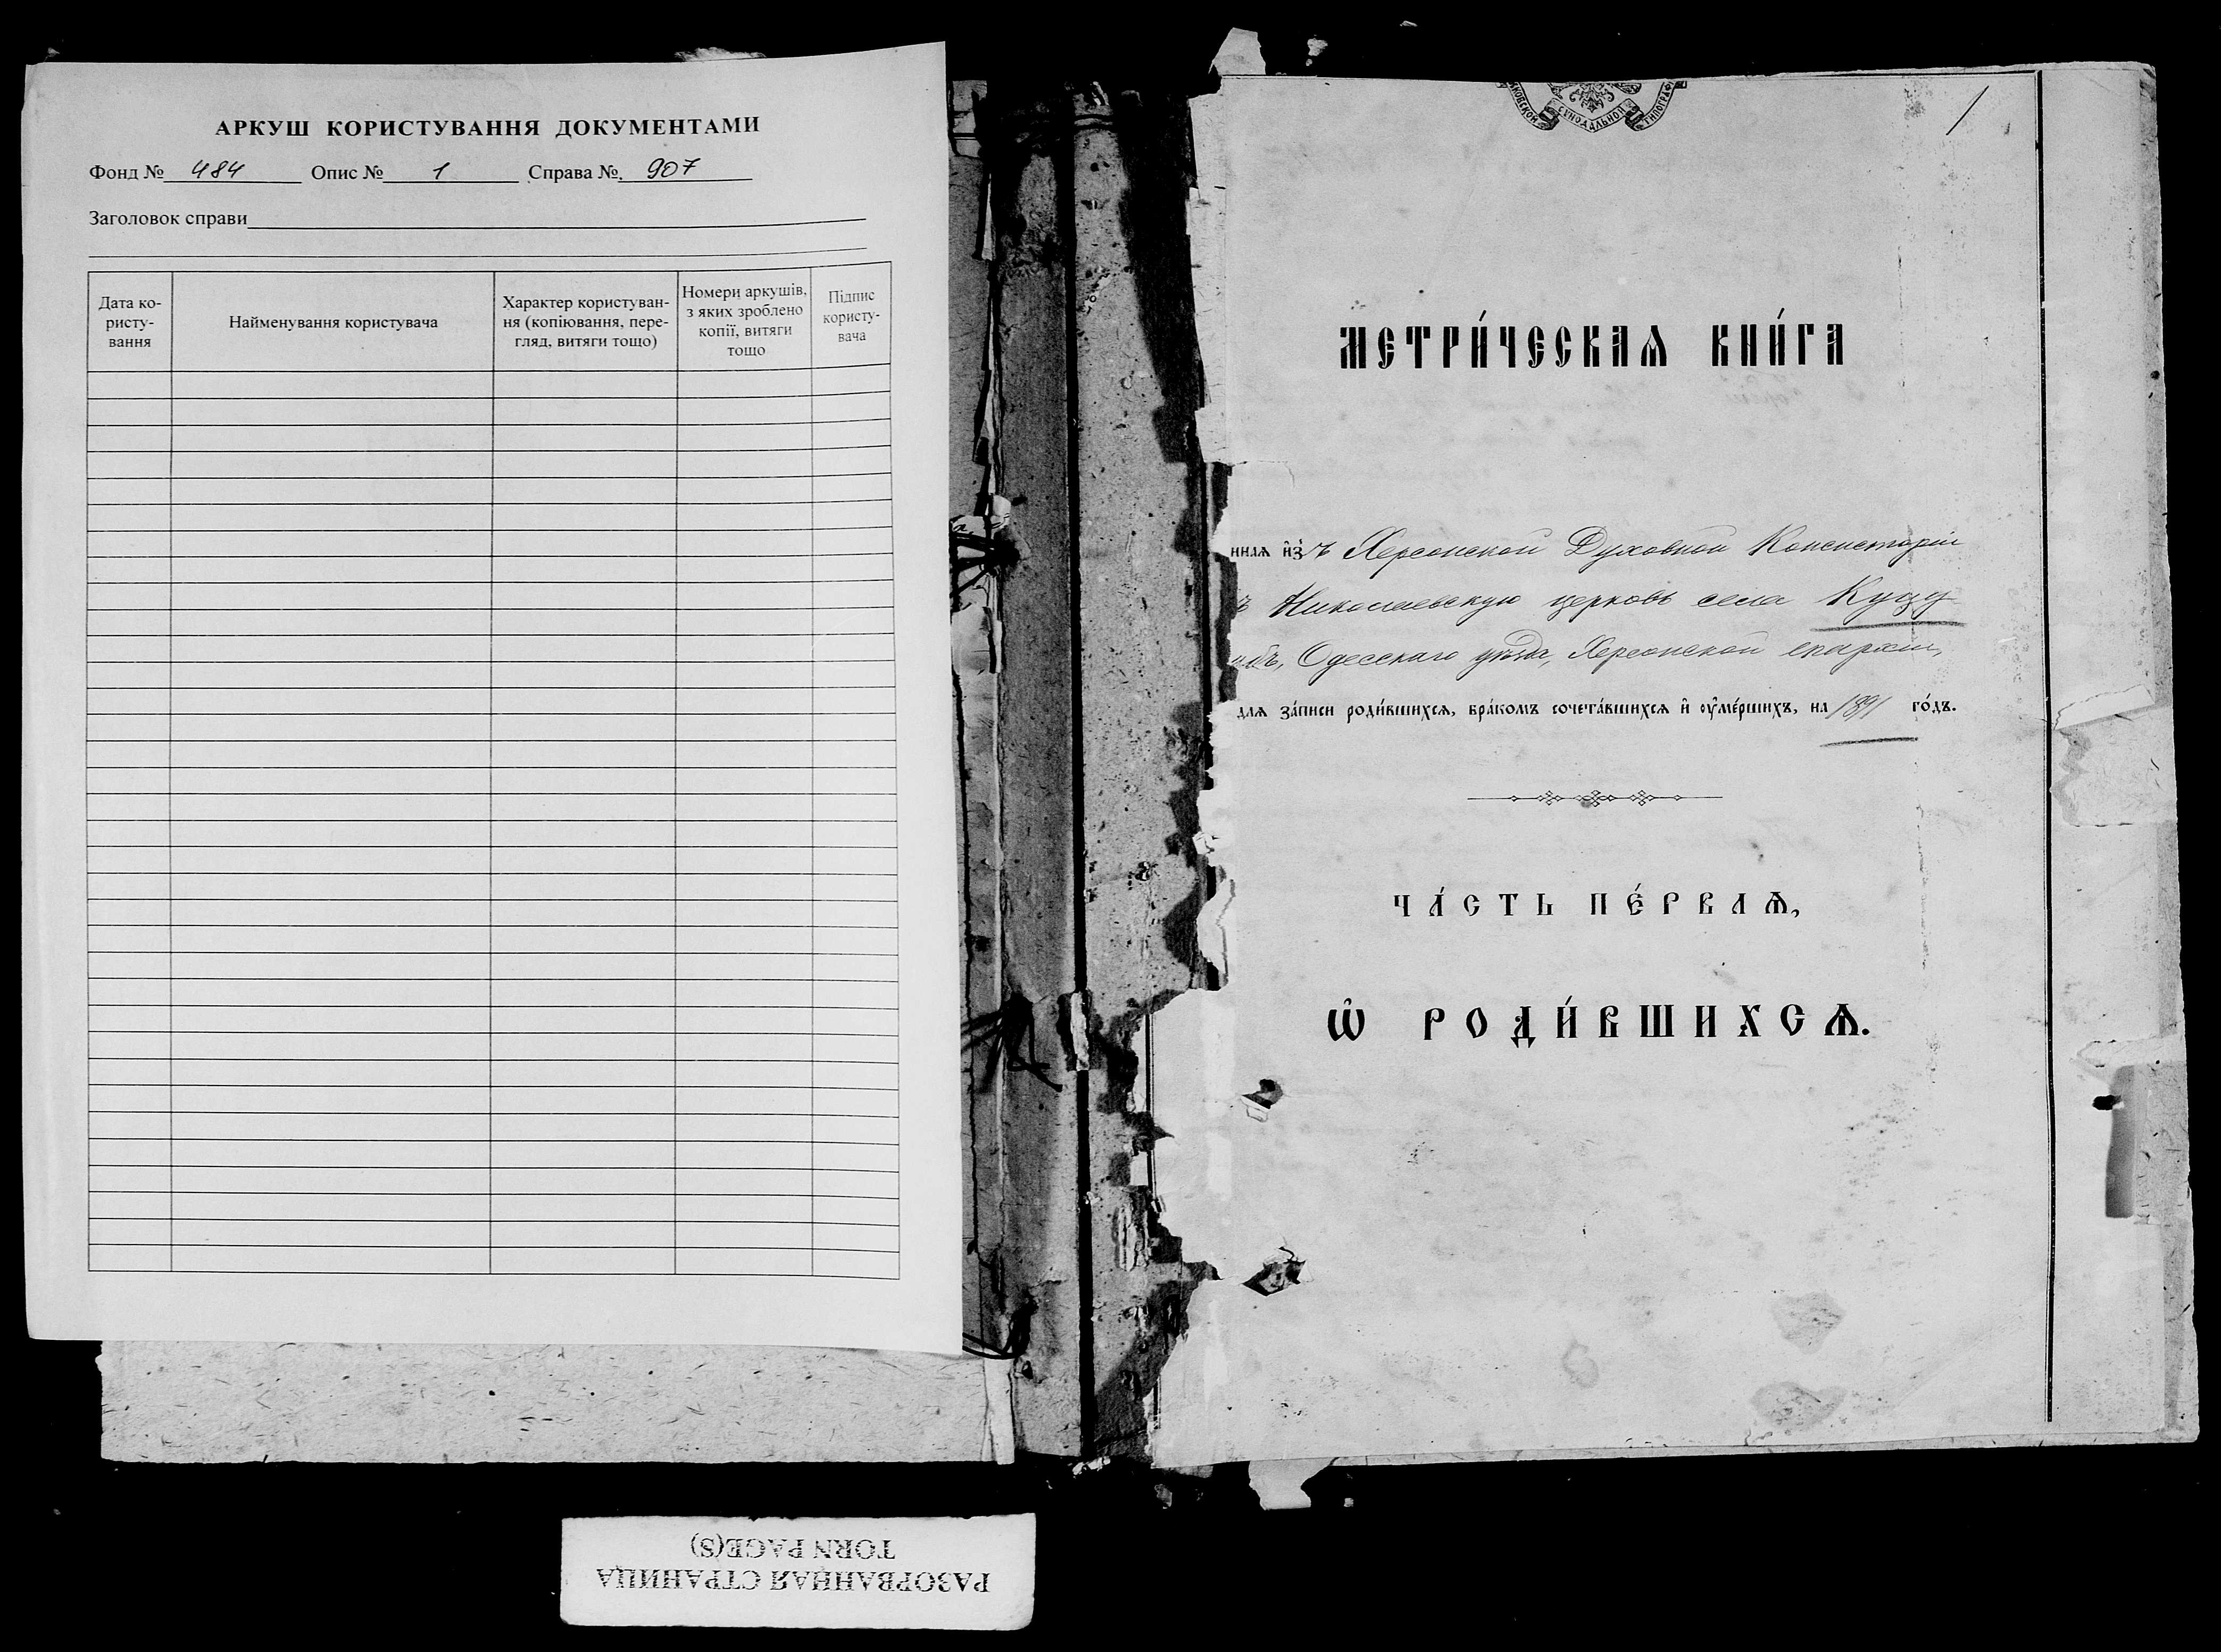 АРКУШ КОРИСТУВАННЯ ДОКУМЕНТАМИ
Фонд № 484 Опис № 1 Справа № 907
Заголовок справи
Дата ко-
ристу-
вання
Найменування користувача
Характер користуван-
ня (копіювання, пере-
гляд, витяги тощо)
Номери аркушів,
з яких зроблено
копії, витяги
тощо
Підпис
користу-
вача
СѴНОДАЛЬНОЙ
1
МЕТРИ́ЧЕСКАѦ КНИ́ГА
ннаѧ и҆з̾ъ Херсонской Духовной Консисторіи
ъ Николаевскую церковь села Куцу
Одесскаго уѣзда, Херсонской епархіи,
длѧ за́писи роди́вшихсѧ, бра́комъ сочета́вшихсѧ и҆ ᲂу҆ме́ршихъ, на 1891 го́дъ.
ЧА́СТЬ ПЕ́РВАѦ,
Ѡ҆ РОДИ́ВШИХСѦ.
РАЗОРВАННАЯ СТРАНИЦА
TORN PAGE(S)